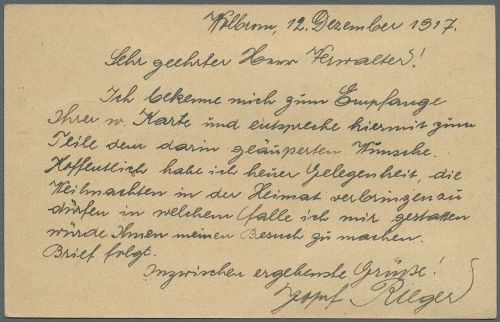 Wolbrom, 12. Dezember 1917.
Sehr geehrter Herr Verwalter!
Ich bekenne mich zum Empfange
Ihrer w. Karte und entspreche hiermit zum
Teile dem darin geäußerten Wunsche.
Hoffentlich habe ich heuer Gelegenheit, die
Weihnachten in der Heimat verbringen zu
dürfen in welchem Falle ich mir gestatten
würde Ihnen meinen Besuch zu machen.
Brief folgt.
Inzwischen ergebenste Grüße!
Josef Rieger